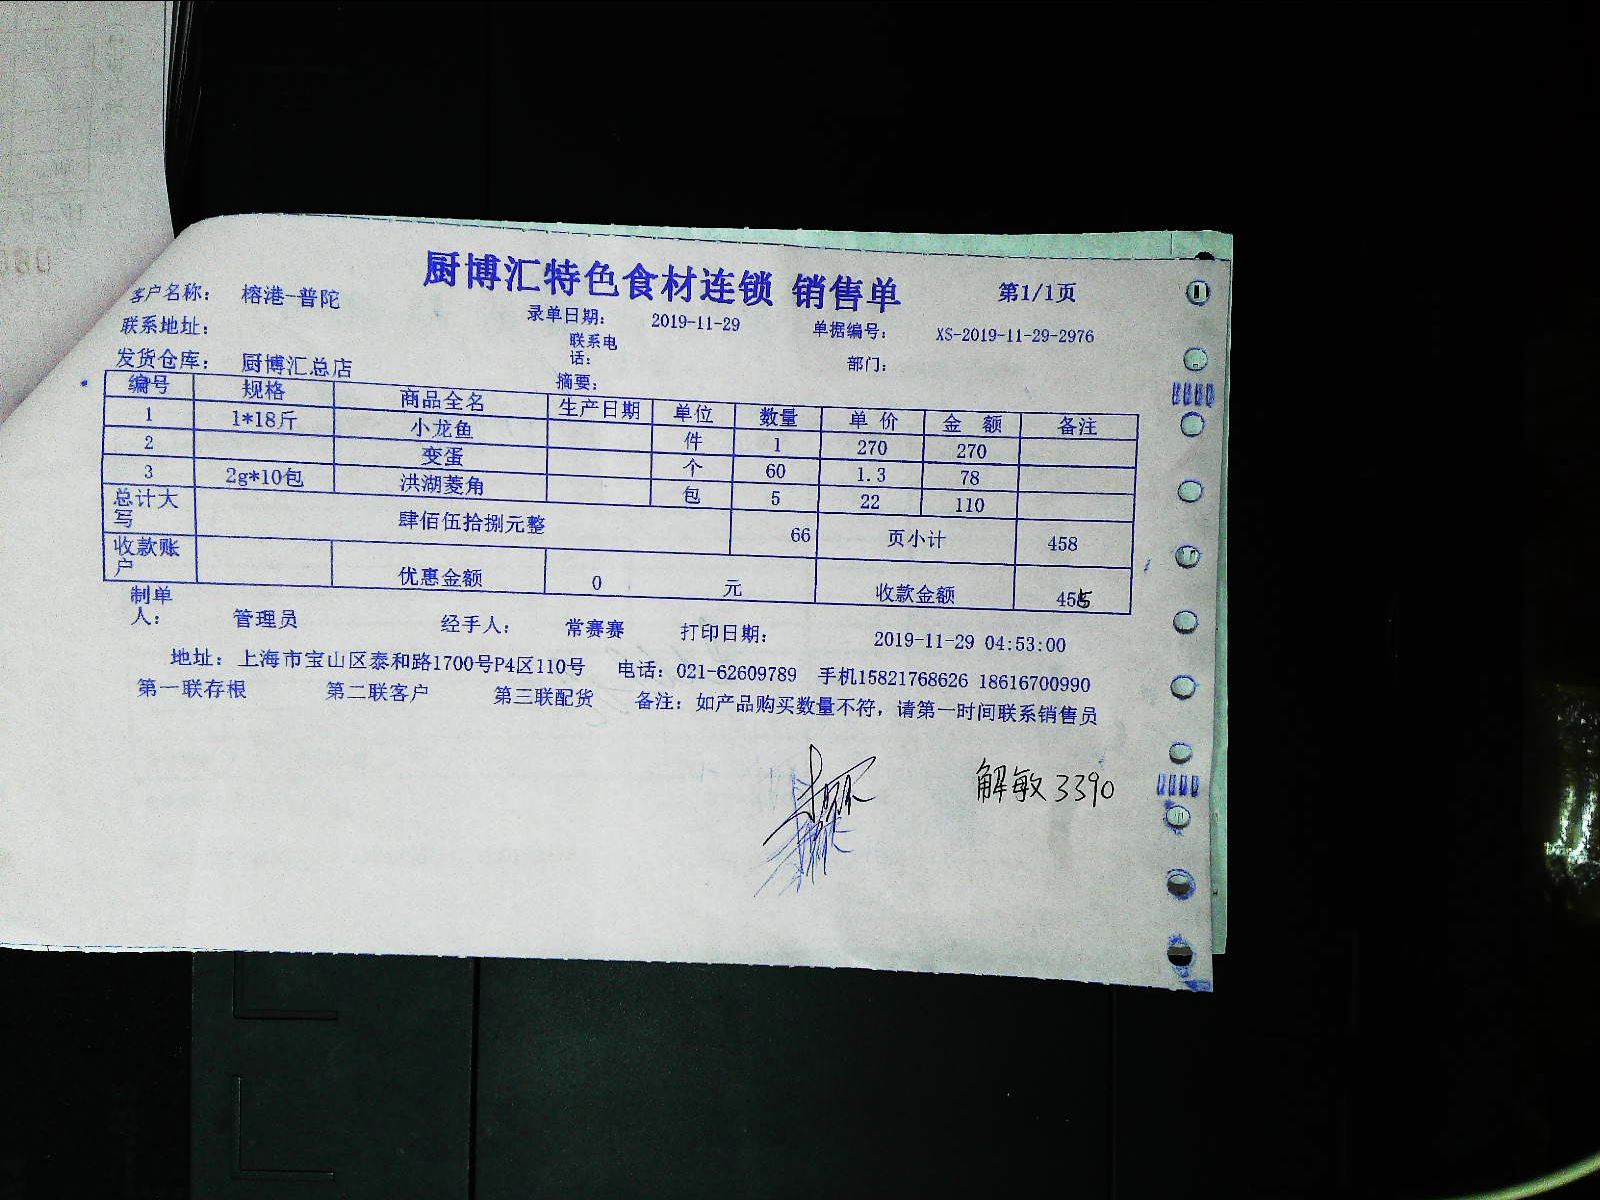 厨博汇特色食材连锁 销售单 第1/1页
客户名称： 榕港-普陀 录单日期： 2019-11-29 单据编号： XS-2019-11-29-2976
联系地址： 联系电话： 部门：
发货仓库： 厨博汇总店 摘要：
编号 规格 商品全名 生产日期 单位 数量 单 价 金 额 备注
1 1*18斤 小龙鱼 件 1 270 270
2 变蛋 个 60 1.3 78
3 2g*10包 洪湖菱角 包 5 22 110
总计大写 肆佰伍拾捌元整 66 页小计 458
收款账户 优惠金额 0 元 收款金额 455
制单人： 管理员 经手人： 常赛赛 打印日期： 2019-11-29 04:53:00
地址：上海市宝山区泰和路1700号P4区110号 电话：021-62609789 手机15821768626 18616700990
第一联存根 第二联客户 第三联配货 备注：如产品购买数量不符，请第一时间联系销售员
解敏3390